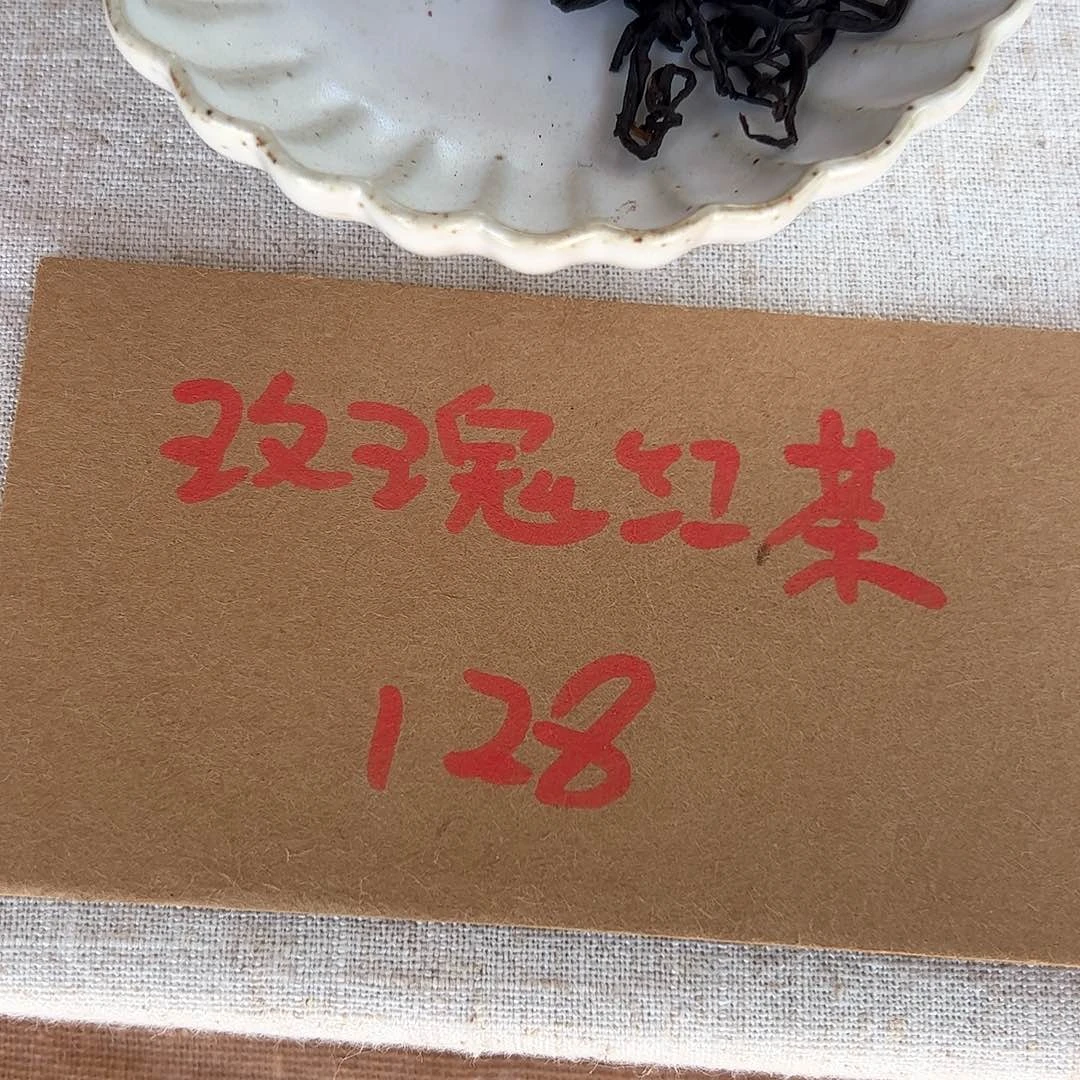 玫瑰红茶
128